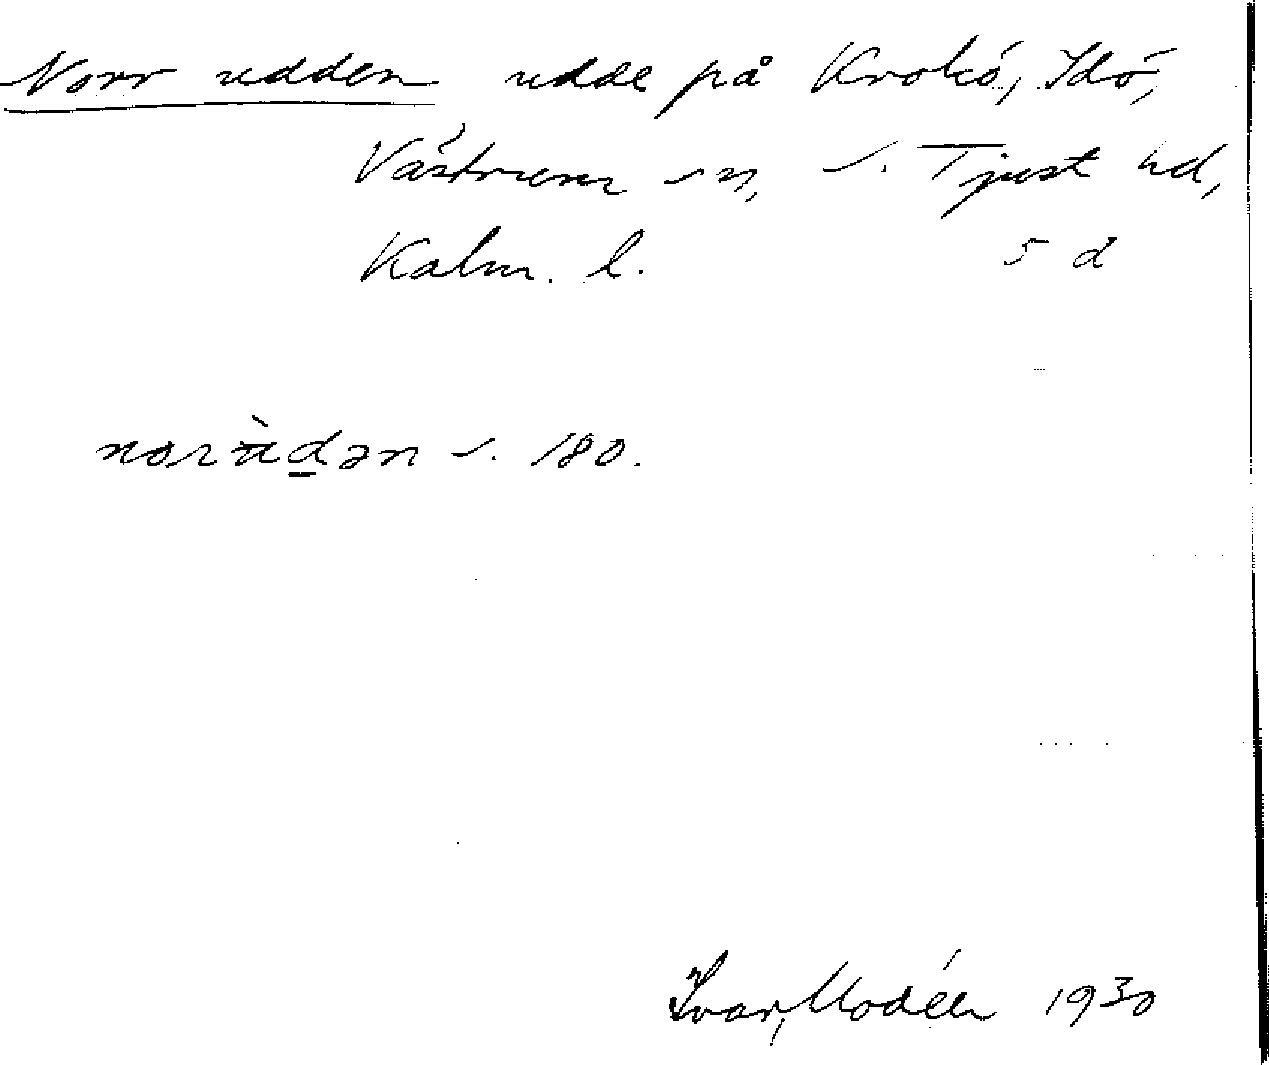 Norrudden udde på Krokö, Idö,
Västrum sn, S. Tjust hd,
Kalm. l. 5 d
norùdən s. 180.
Ivar Modéer 1930